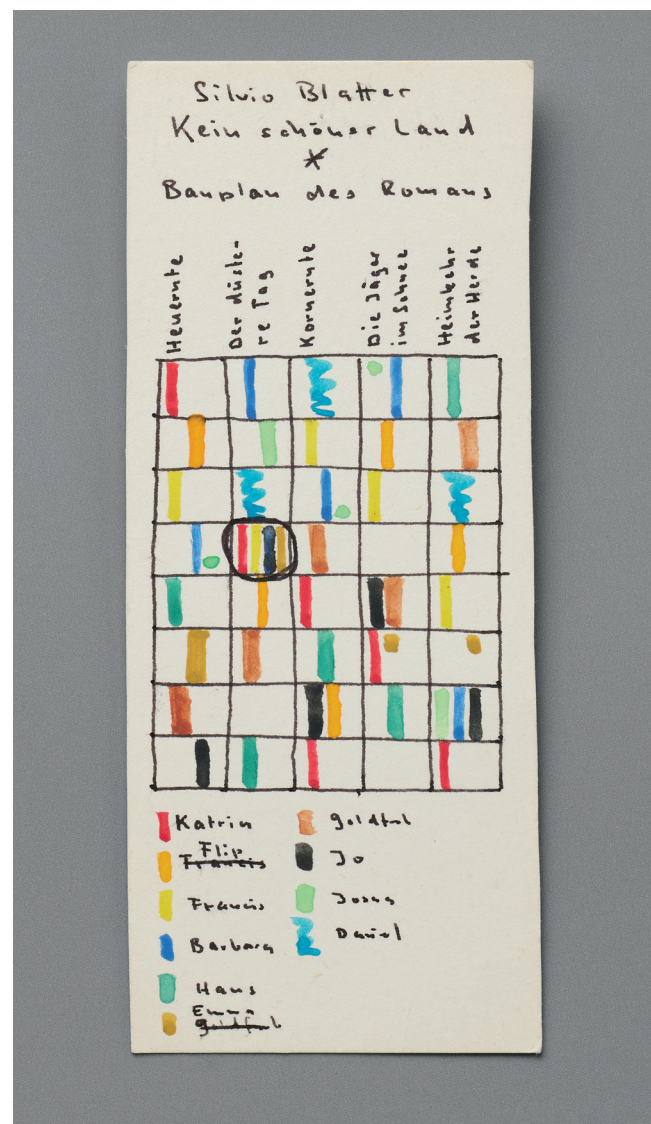 Silvio Blatter
Kein schöner Land
*
Bauplan des Romans
Heuernte
Der düste-
re Tag
Kornernte
Die Jäger
im Schnee
Heimkehr
der Herde
Katrin
Flip
Francis
Francis
Barbara
Hans
Emma
Jo
Josua
Daniel